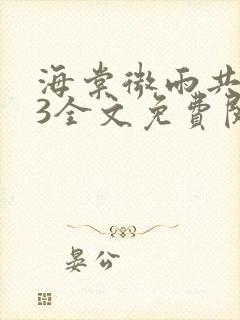 海棠微雨共
3全文免費閱
晏公